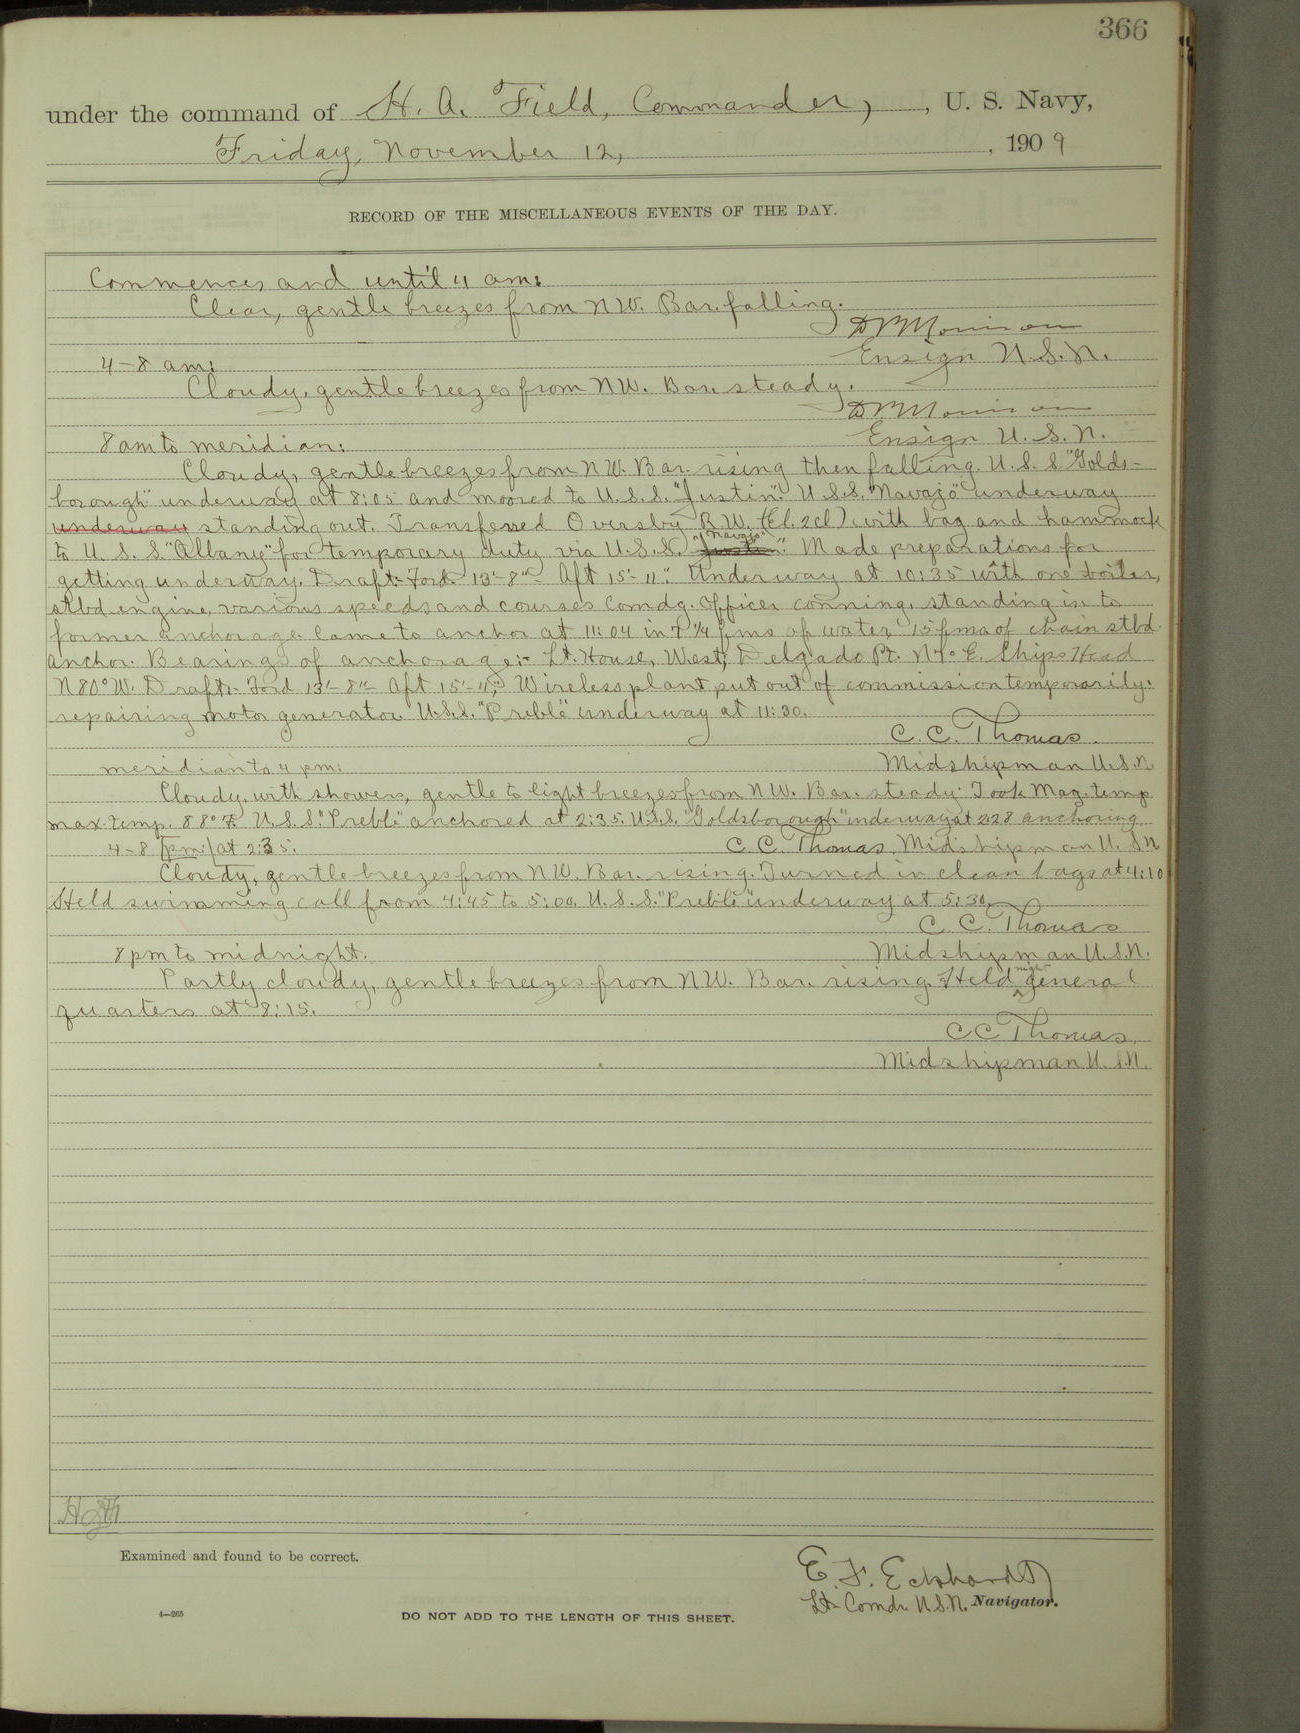 366
under the command of H. A. Field, Commander, , U. S. Navy,
Friday, November 12, , 1909
RECORD OF THE MISCELLANEOUS EVENTS OF THE DAY.
Commences and until 4 am:
Clear, gentle breezes from NW. Bar. falling.
DBMorrison
4-8 am:
Ensign U.S.N.
Cloudy, gentle breezes from NW. Bar. steady.
DBMorrison
8 am to meridian:
Ensign U. S. N.
Cloudy, gentle breezes from NW. Bar. rising then falling. U. S. S. "Golds-
borough" underway at 8:05 and moored to U.S.S. "Justin". U.S.S. "Navajo" underway
underway standing out. Transferred Oversby R.W. (El. 2cl.) with bag and hammock
to U. S. S. "Albany" for temporary duty via U.S.S. "Justin" "Navajo". Made preparations for
getting underway. Draft:- Ford. 13'-8"- Aft 15'-11". Underway at 10:35 with one boiler,
stbd engine, various speeds and courses Comdg. Officer conning, standing in to
former anchorage. Came to anchor at 11:04 in 7 1/4 fms of water 15 fms of chain stbd.
anchor. Bearings of anchorage:- Lt. House, West; Delgado Pt. N7°E. Ships Head
N80°W. Draft:- Ford 13'-8"- Aft 15'-11". Wireless plant put out of commission temporarily:
repairing motor generator. U.S.S. "Preble" underway at 11:30.
C. C. Thomas.
meridian to 4 pm:
Midshipman U.S.N.
Cloudy, with showers, gentle to light breezes from NW. Bar. steady. Took Mag. temp
max. temp. 88°F. U.S.S. "Preble" anchored at 2:35. U.S.S. "Goldsborough" underway at 2:28 anchoring
4-8 [pm:] at 2:35. C C Thomas, Midshipman U. S.N
Cloudy, gentle breezes from NW. Bar. rising. Turned in clean bags at 4:10
Held swimming call from 4:45 to 5:00. U.S.S. "Preble" underway at 5:30.
C. C. Thomas
8 pm to midnight.
Midshipman U.S.N.
Partly cloudy, gentle breezes from NW. Bar. rising. Held night general
quarters at 8:15.
C C Thomas.
Midshipman U. S.N.
Examined and found to be correct.
E. F. Eckhardt
Lt. Comdr. U.S.N. Navigator.
4—265
DO NOT ADD TO THE LENGTH OF THIS SHEET.